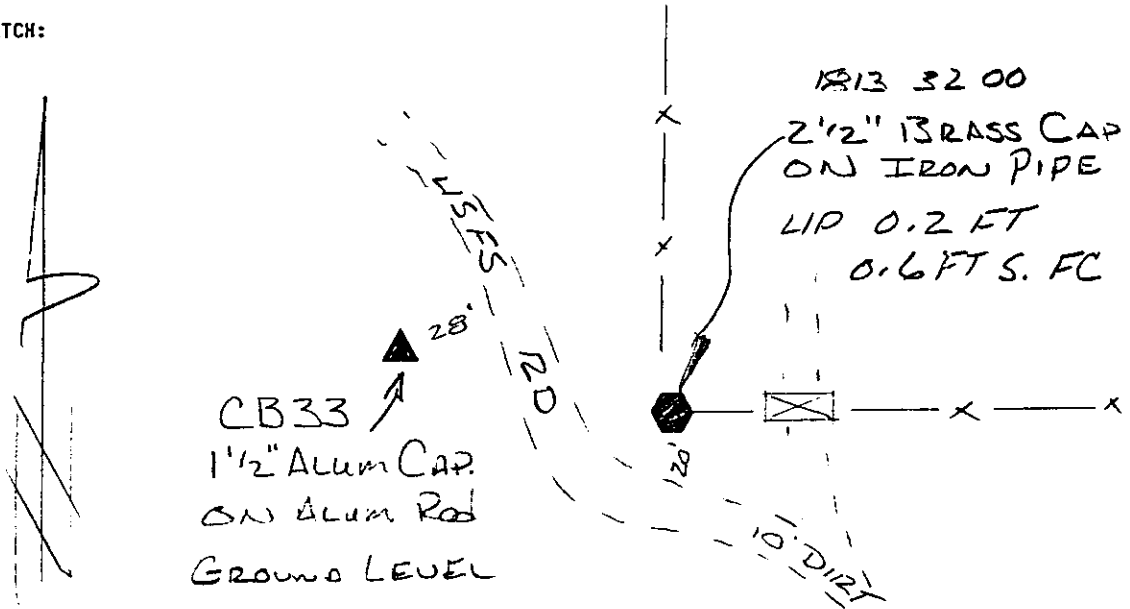 TCH:
1813 32 00
2 1/2" BRASS CAP
ON IRON PIPE
UP 0.2 FT
0.6 FT S. FC
USFS
RD
28'
CB33
1 1/2" ALUM CAP.
ON ALUM ROD
GROUND LEVEL
120'
10' DIRT
N